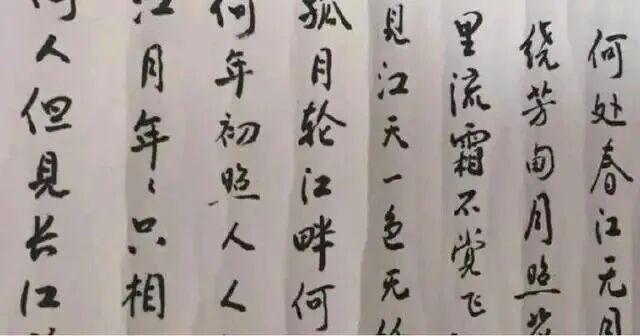 何处春江无月
绕芳甸月照花
里流霜不觉飞
见江天一色无纤
孤月轮江畔何
何年初照人人
江月年〻只相
何人但见长江